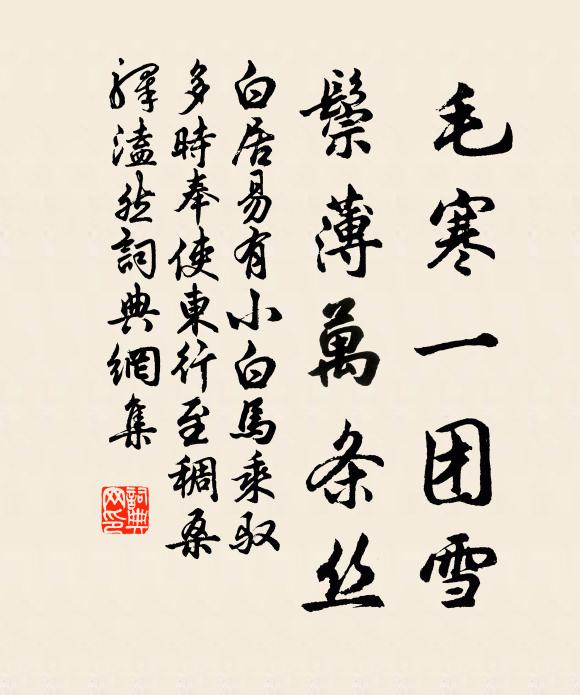 毛寒一团雪
鬃薄萬条丝
白居易有小白馬乘驭
多時奉使東行至稠桑
驛溘然詞典網集
詞典网印